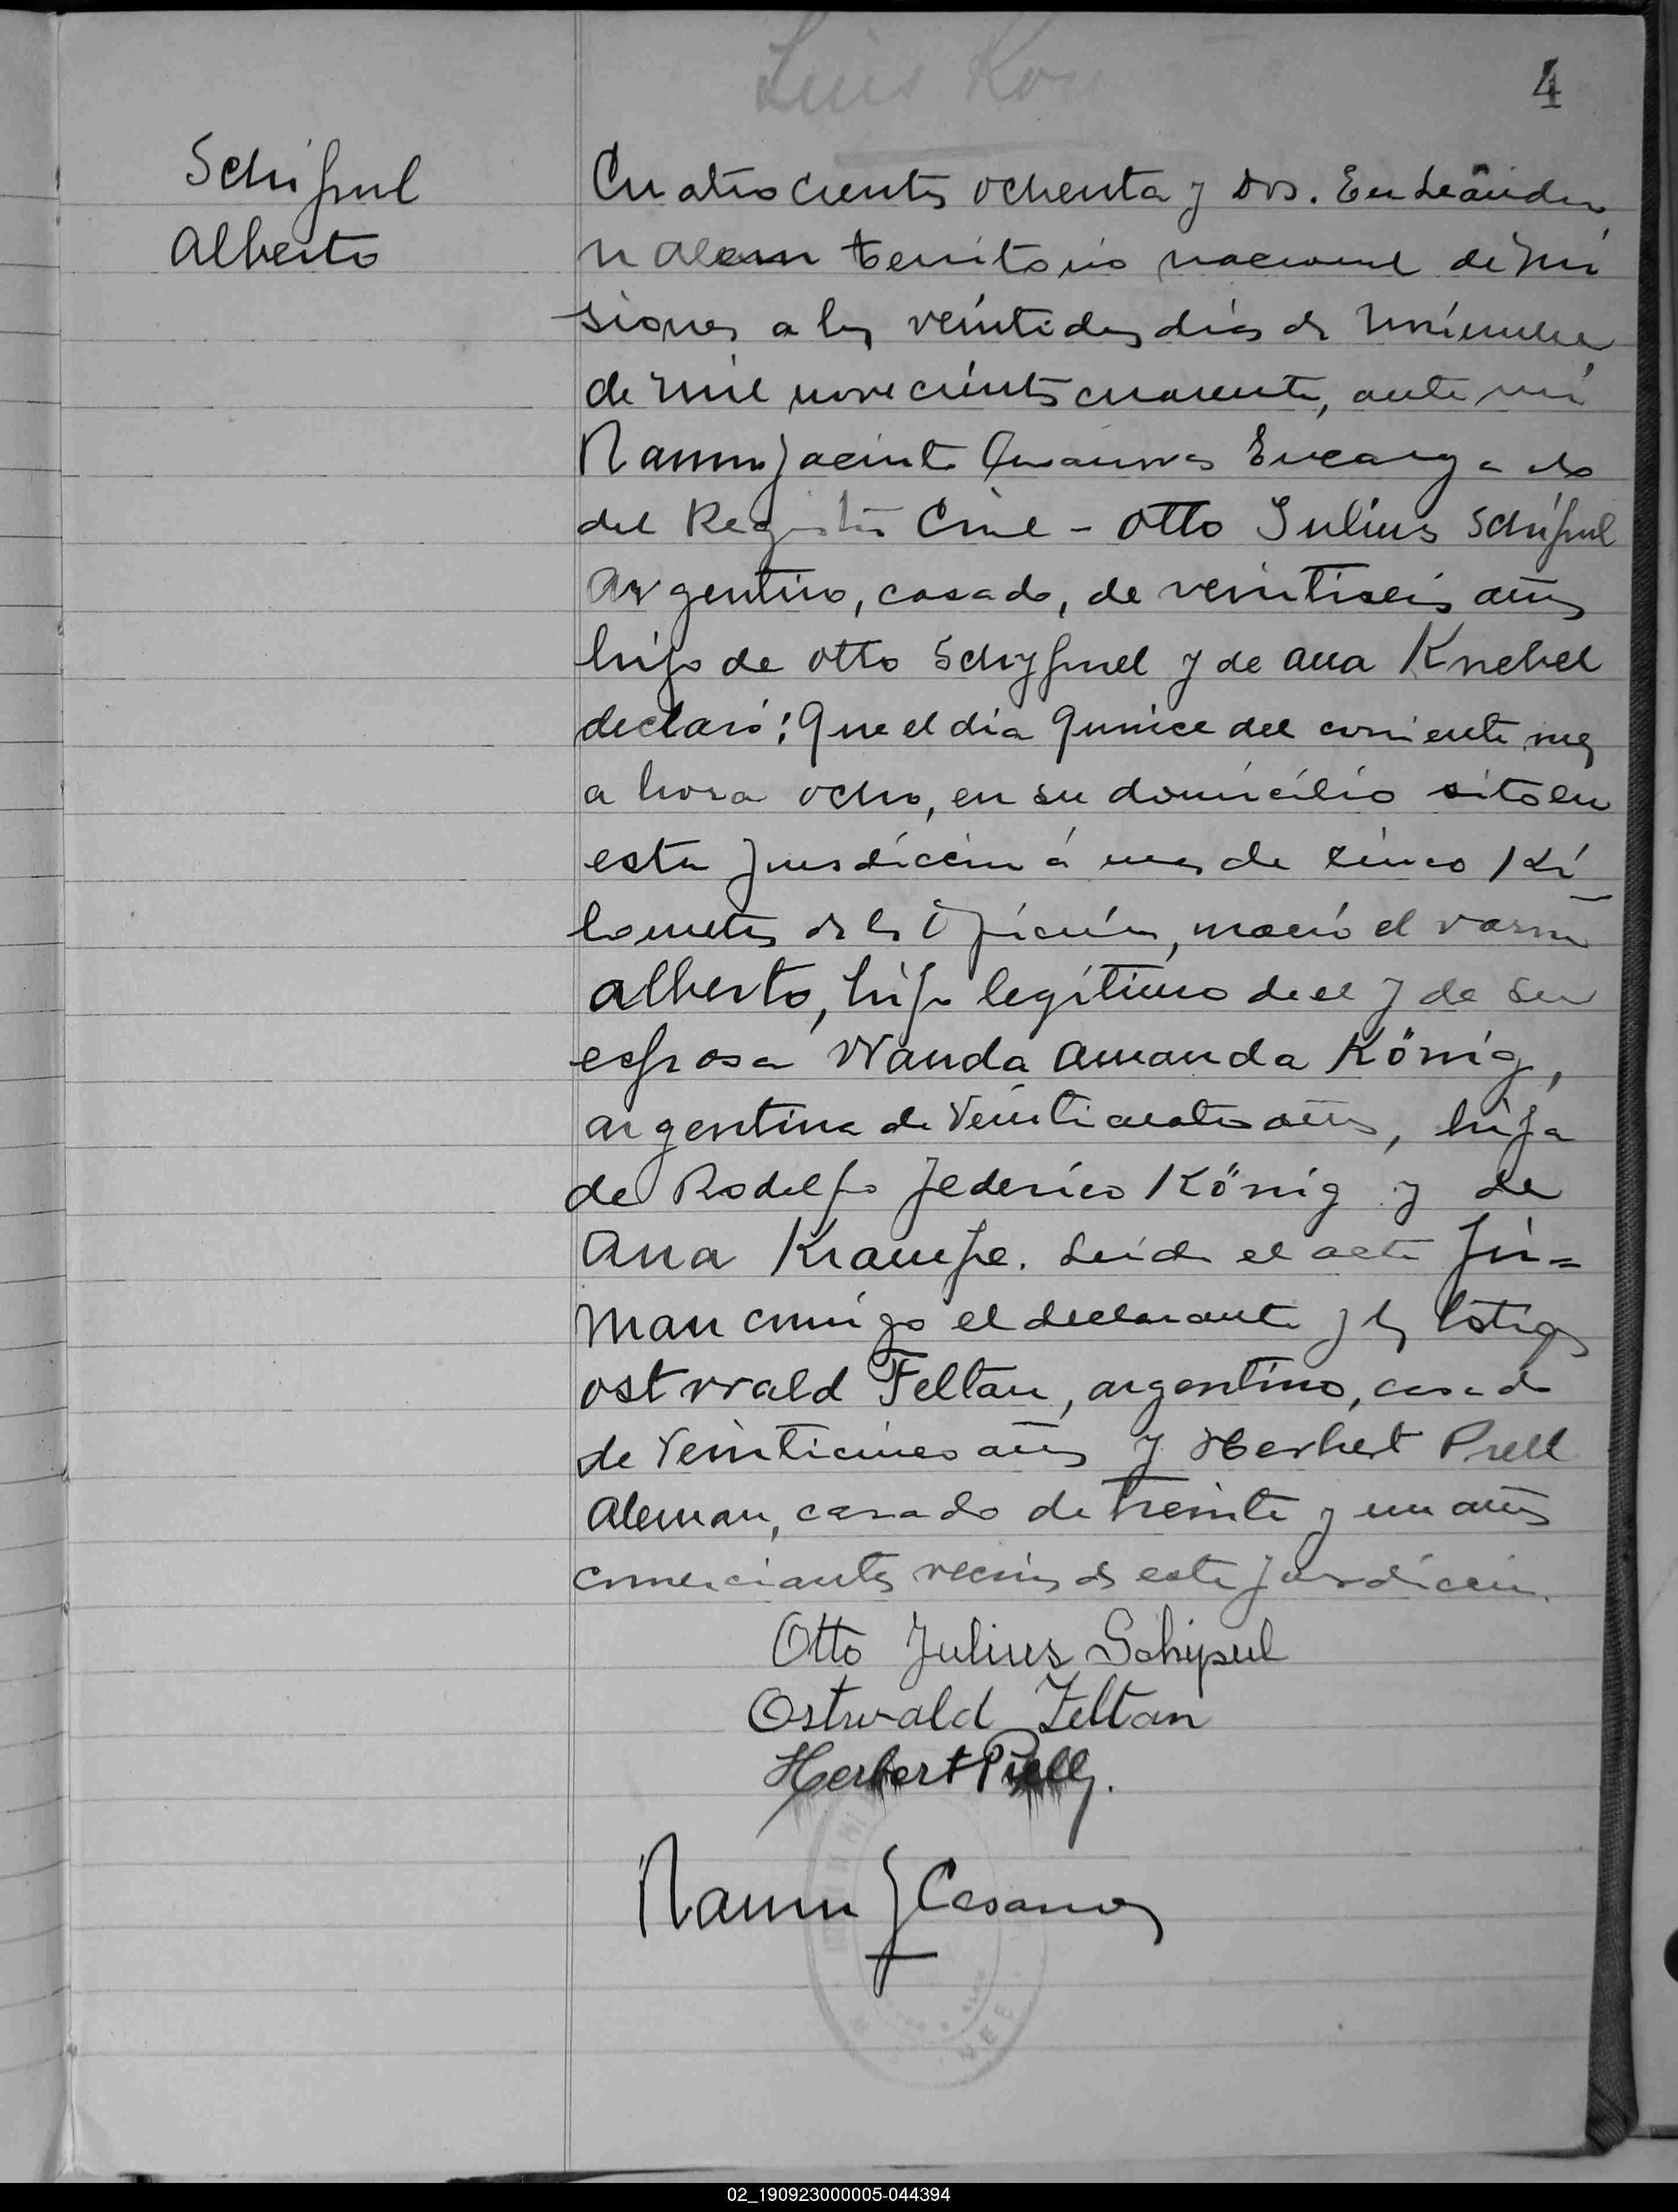 Luis
4
Schipul
Alberto
Cuatrocientos ochenta y dos. En Leandro
N Alem territorio nacional de Mi
siones a los veintidos dias de Noviembre
de mil novecientos cuarenta, ante mí
Ramon Jacinto Casanova Encargado
del Registro Civil - Otto Julius Schipul
Argentino, casado, de veintiseis años
hijo de Otto Schypuel y de Ana Knebel
declaró: Que el día quince del corriente mes
a hora ocho, en su domicilio sito en
esta jurisdiccion á mas de cinco Ki
lometros de la Oficina, nació el varon
Alberto, hijo legítimo de el y de su
esposa Wanda Amanda König,
argentina de veinticuatro años, hija
de Rodolfo Federico König y de
Ana Krampe. Leida el acta fir=
man conmigo el declarante y los testigos
Ostwald Feltan, argentino, casado
de veinticinco años y Herbert Prell
Aleman, casado de treinta y un años
comerciantes vecinos de esta jurisdiccion.
Otto Julius Schipul
Ostwald Feltan
Herbert Prell.
Ramon J Casanova
02_190923000005-044394